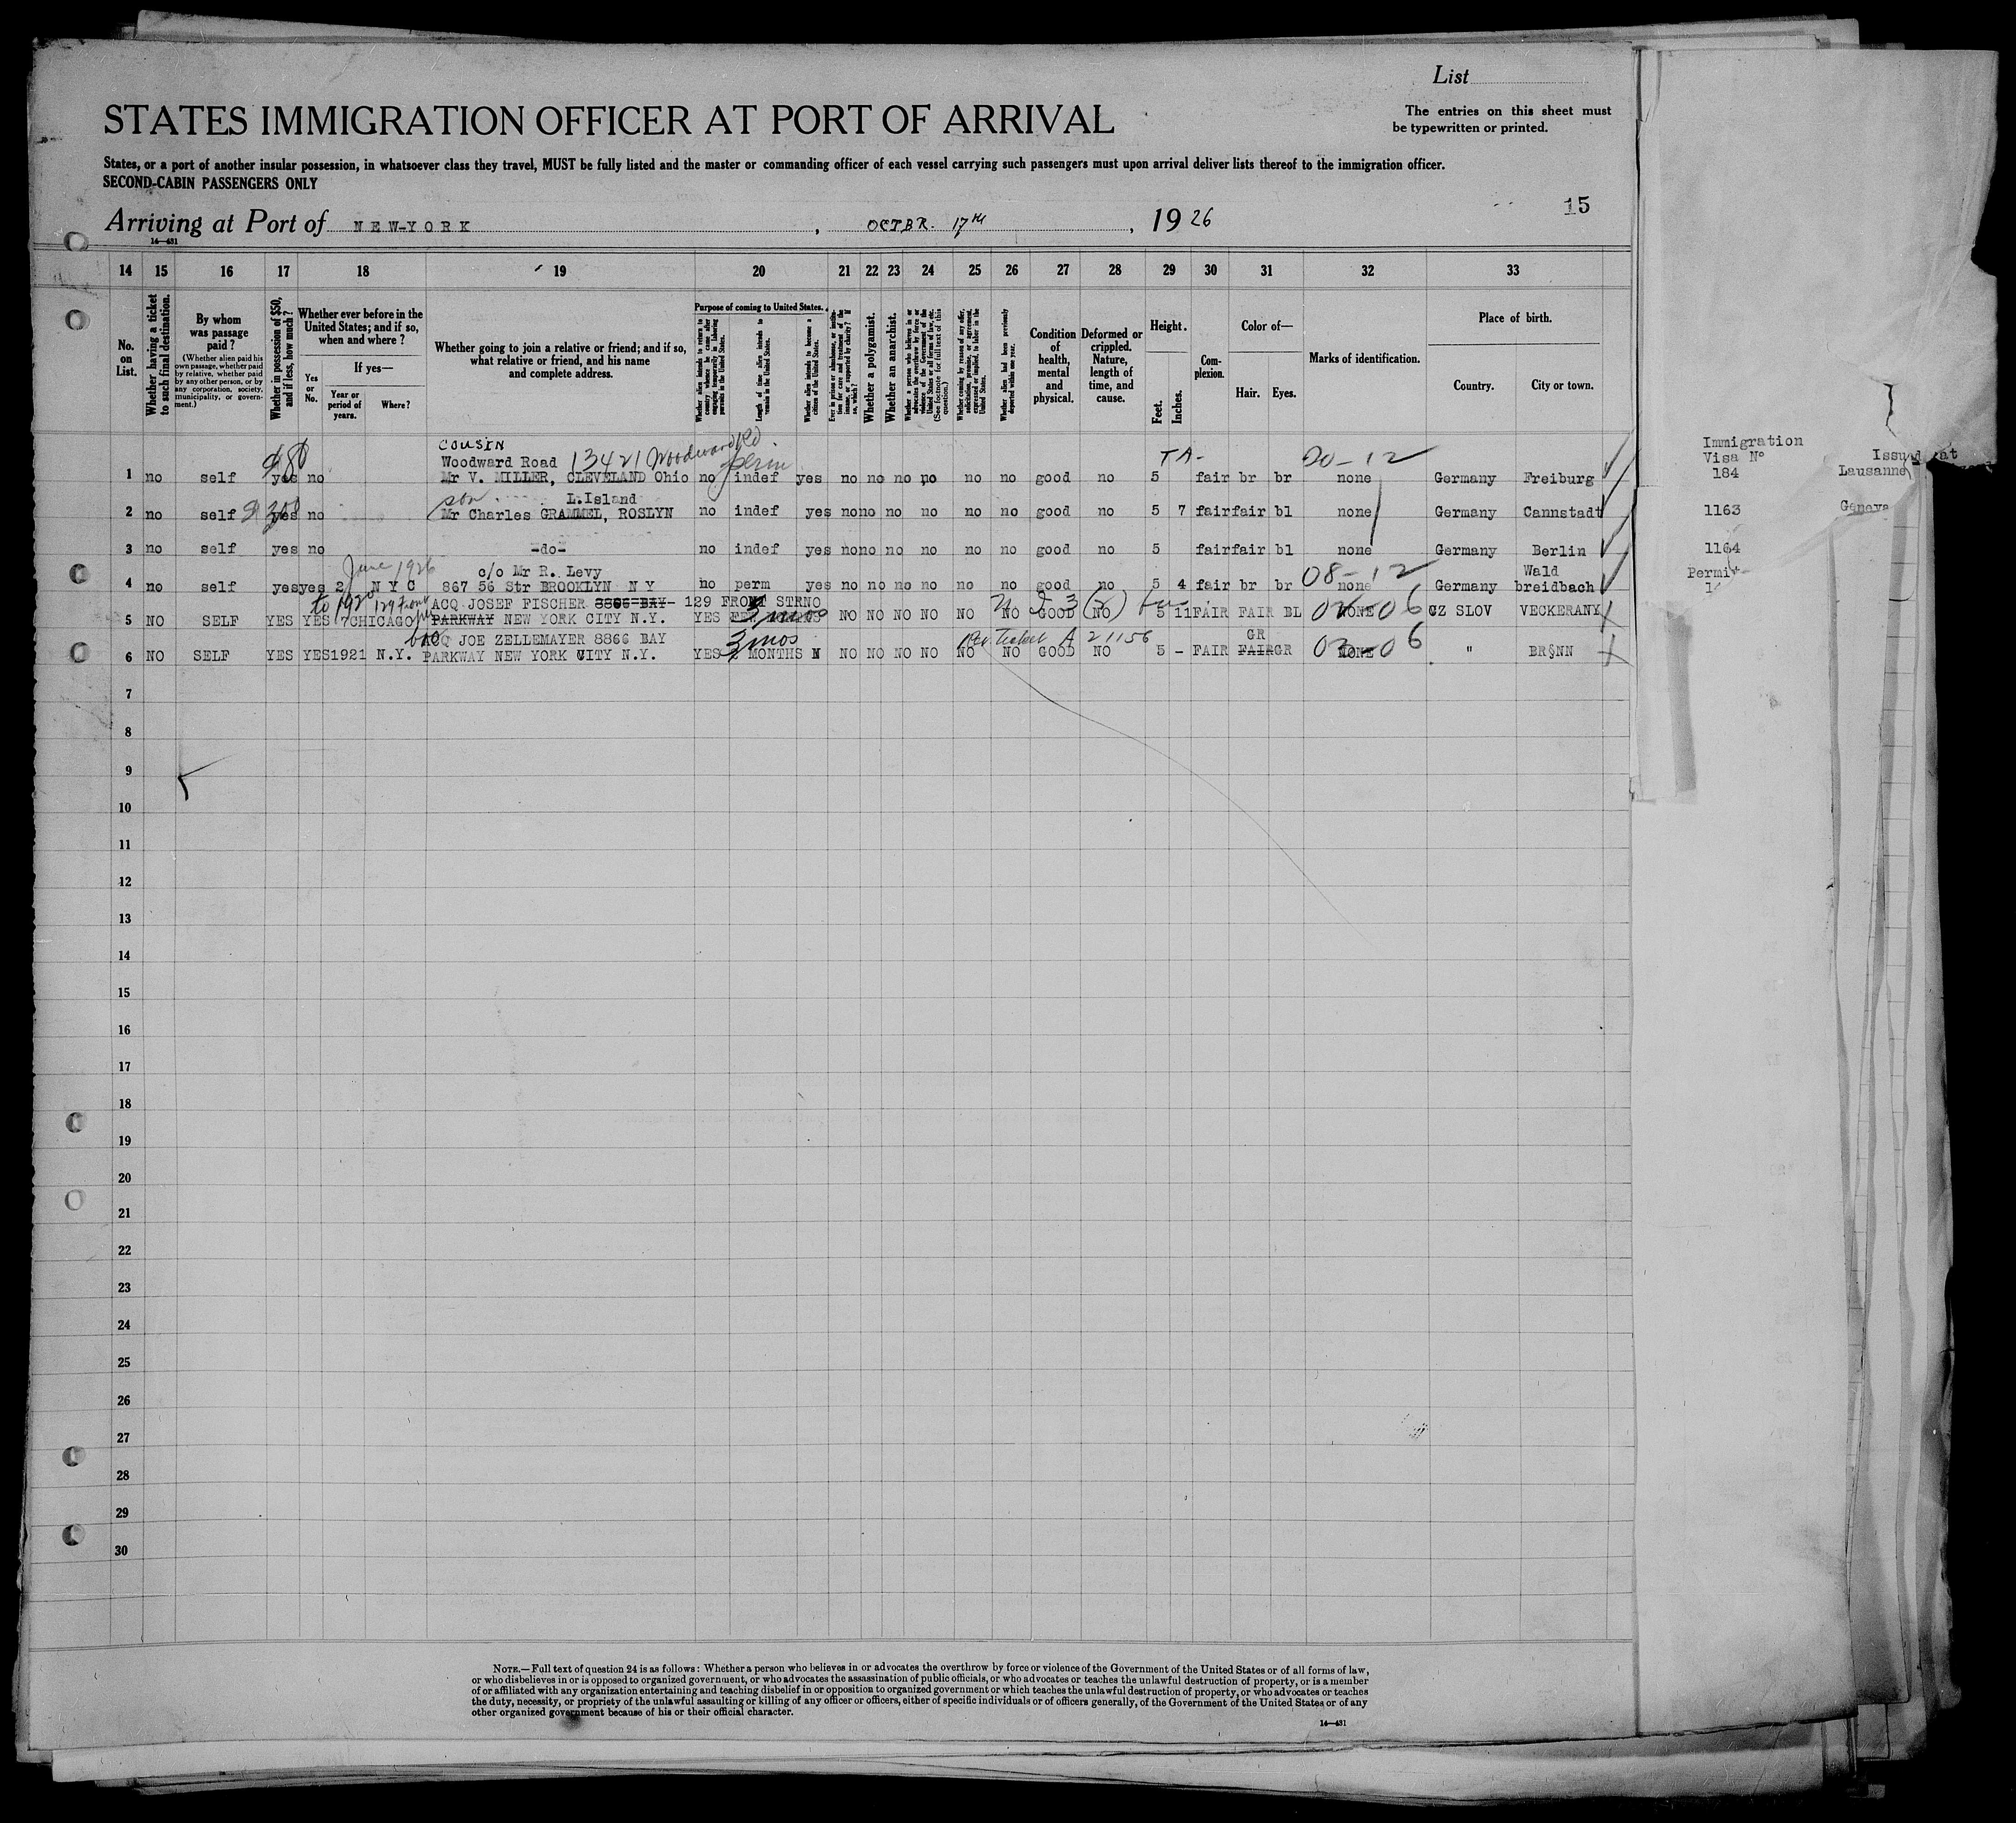 List
STATES IMMIGRATION OFFICER AT PORT OF ARRIVAL
The entries on this sheet must
be typewritten or printed.
States, or a port of another insular possession, in whatsoever class they travel, MUST be fully listed and the master or commanding officer of each vessel carrying such passengers must upon arrival deliver lists thereof to the immigration officer.
SECOND-CABIN PASSENGERS ONLY
15
Arriving at Port of NEW-YORK, OCTBR. 17th, 1926
14—431
14 15 16 17 18 19 20 21 22 23 24 25 26 27 28 29 30 31 32 33
No. on List.
Whether having a ticket to such final destination.
By whom was passage paid?
(Whether alien paid his own passage, whether paid by relative, whether paid by any other person, or by any corporation, society, municipality, or government.)
Whether in possession of $50, and if less, how much?
Whether ever before in the United States; and if so, when and where?
Yes or No.
If yes—
Year or period of years.
Where?
Whether going to join a relative or friend; and if so, what relative or friend, and his name and complete address.
Purpose of coming to United States.
Whether alien intends to return to country whence he came after engaging temporarily in laboring pursuits in the United States.
Length of time alien intends to remain in the United States.
Whether alien intends to become a citizen of the United States.
Ever in prison or almshouse, or institution for care and treatment of the insane, or supported by charity? If so, which?
Whether a polygamist.
Whether an anarchist.
Whether a person who believes in or advocates the overthrow by force or violence of the Government of the United States or all forms of law, etc. (See footnote for full text of this question.)
Whether coming by reason of any offer, solicitation, promise, or agreement, expressed or implied, to labor in the United States.
Whether alien had been previously deported within one year.
Condition of health, mental and physical.
Deformed or crippled. Nature, length of time, and cause.
Height.
Feet. Inches.
Complexion.
Color of—
Hair. Eyes.
Marks of identification.
Place of birth.
Country. City or town.
Immigration
Visa Nº Issued at
COUSIN
Woodward Road 13421 Woodward Rd.
$80 perm TA- 20-12
1 no self yes no Mr V. MILLER, CLEVELAND Ohio no indef yes no no no no no no good no 5 fair br br none Germany Freiburg 184 Lausanne
son L.Island
2 no self yes no Mr Charles GRAMMEL, ROSLYN no indef yes no no no no no no good no 5 7 fair fair bl none Germany Cannstadt 1163 Geneva
3 no self yes no -do- no indef yes no no no no no no good no 5 fair fair bl none Germany Berlin 1164
June 1926 c/o Mr R. Levy 08-12 Wald Permit
4 no self yes yes 2 N Y C 867 56 Str BROOKLYN N Y no perm yes no no no no no no good no 5 4 fair br br none Germany breidbach
to 1920 129 Front ACQ JOSEF FISCHER 8866 BAY 129 FRONT STR NO
5 NO SELF YES YES 7 CHICAGO PARKWAY NEW YORK CITY N.Y. YES 3 mos NO NO NO NO NO NO GOOD NO 5 11 FAIR FAIR BL NONE CZ SLOV VECKERANY
ACQ JOE ZELLEMAYER 8866 BAY 3 mos Ticket A 21156 GR
6 NO SELF YES YES 1921 N.Y. PARKWAY NEW YORK CITY N.Y. YES MONTHS N NO NO NO NO NO NO GOOD NO 5 - FAIR FAIR GR NONE " BR§NN
7
8
9
10
11
12
13
14
15
16
17
18
19
20
21
22
23
24
25
26
27
28
29
30
NOTE.—Full text of question 24 is as follows: Whether a person who believes in or advocates the overthrow by force or violence of the Government of the United States or of all forms of law,
or who disbelieves in or is opposed to organized government, or who advocates the assassination of public officials, or who advocates or teaches the unlawful destruction of property, or is a member
of or affiliated with any organization entertaining and teaching disbelief in or opposition to organized government or which teaches the unlawful destruction of property, or who advocates or teaches
the duty, necessity, or propriety of the unlawful assaulting or killing of any officer or officers, either of specific individuals or of officers generally, of the Government of the United States or of any
other organized government because of his or their official character.
14—431